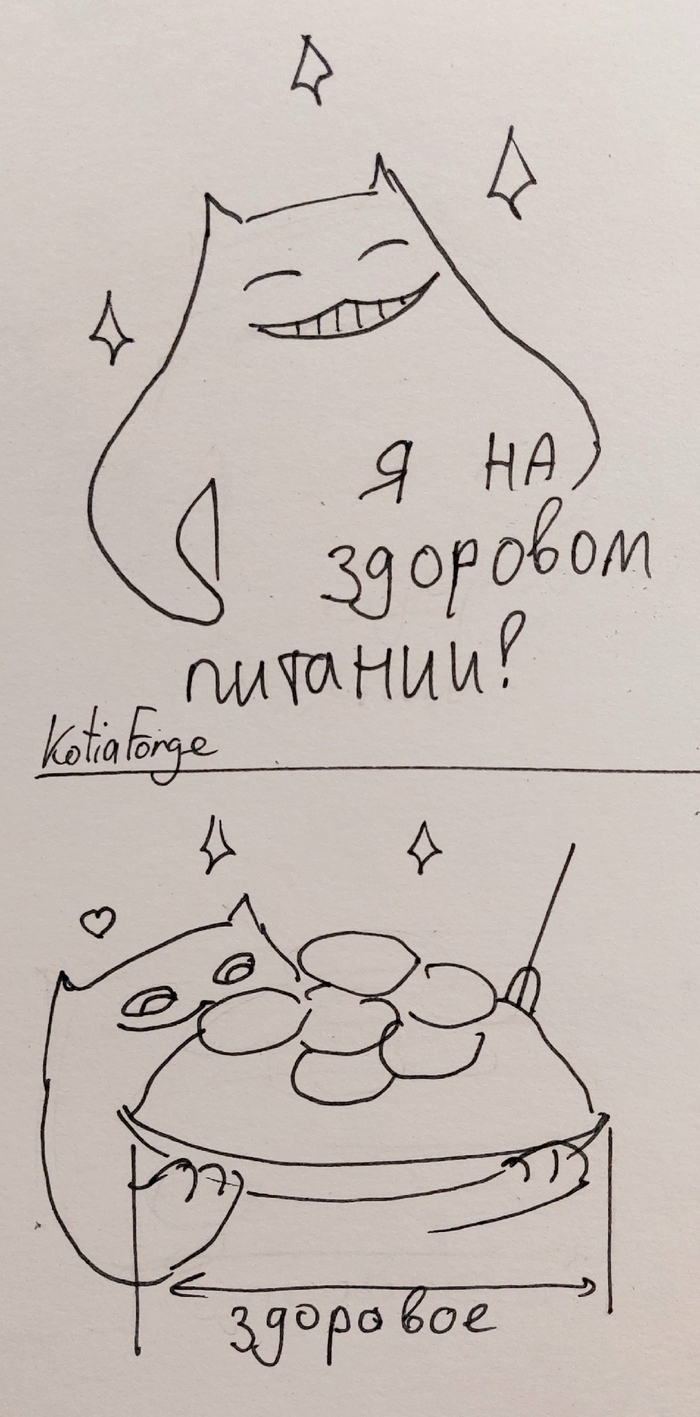 Я НА
здоровом
питании!
KotiaForge
здоровое